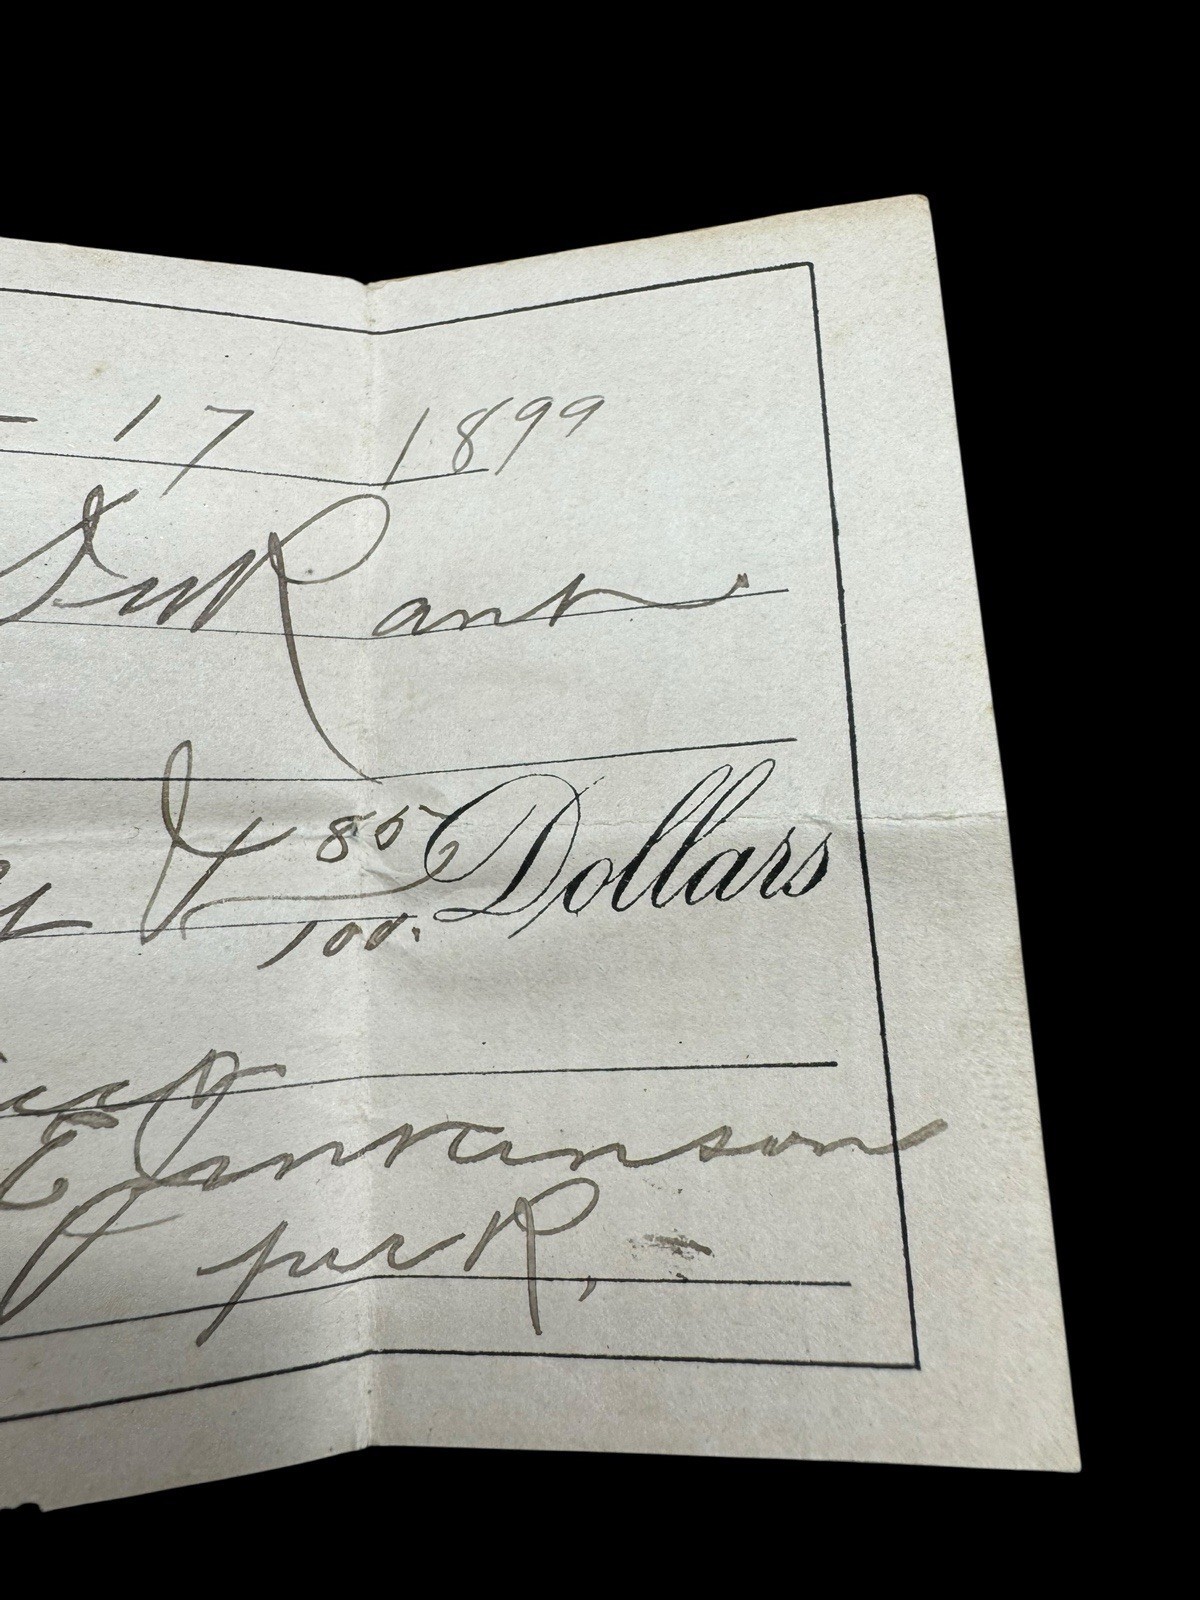 17 1899
DuRant
& 85/100. Dollars
E Jenkinson
per R,